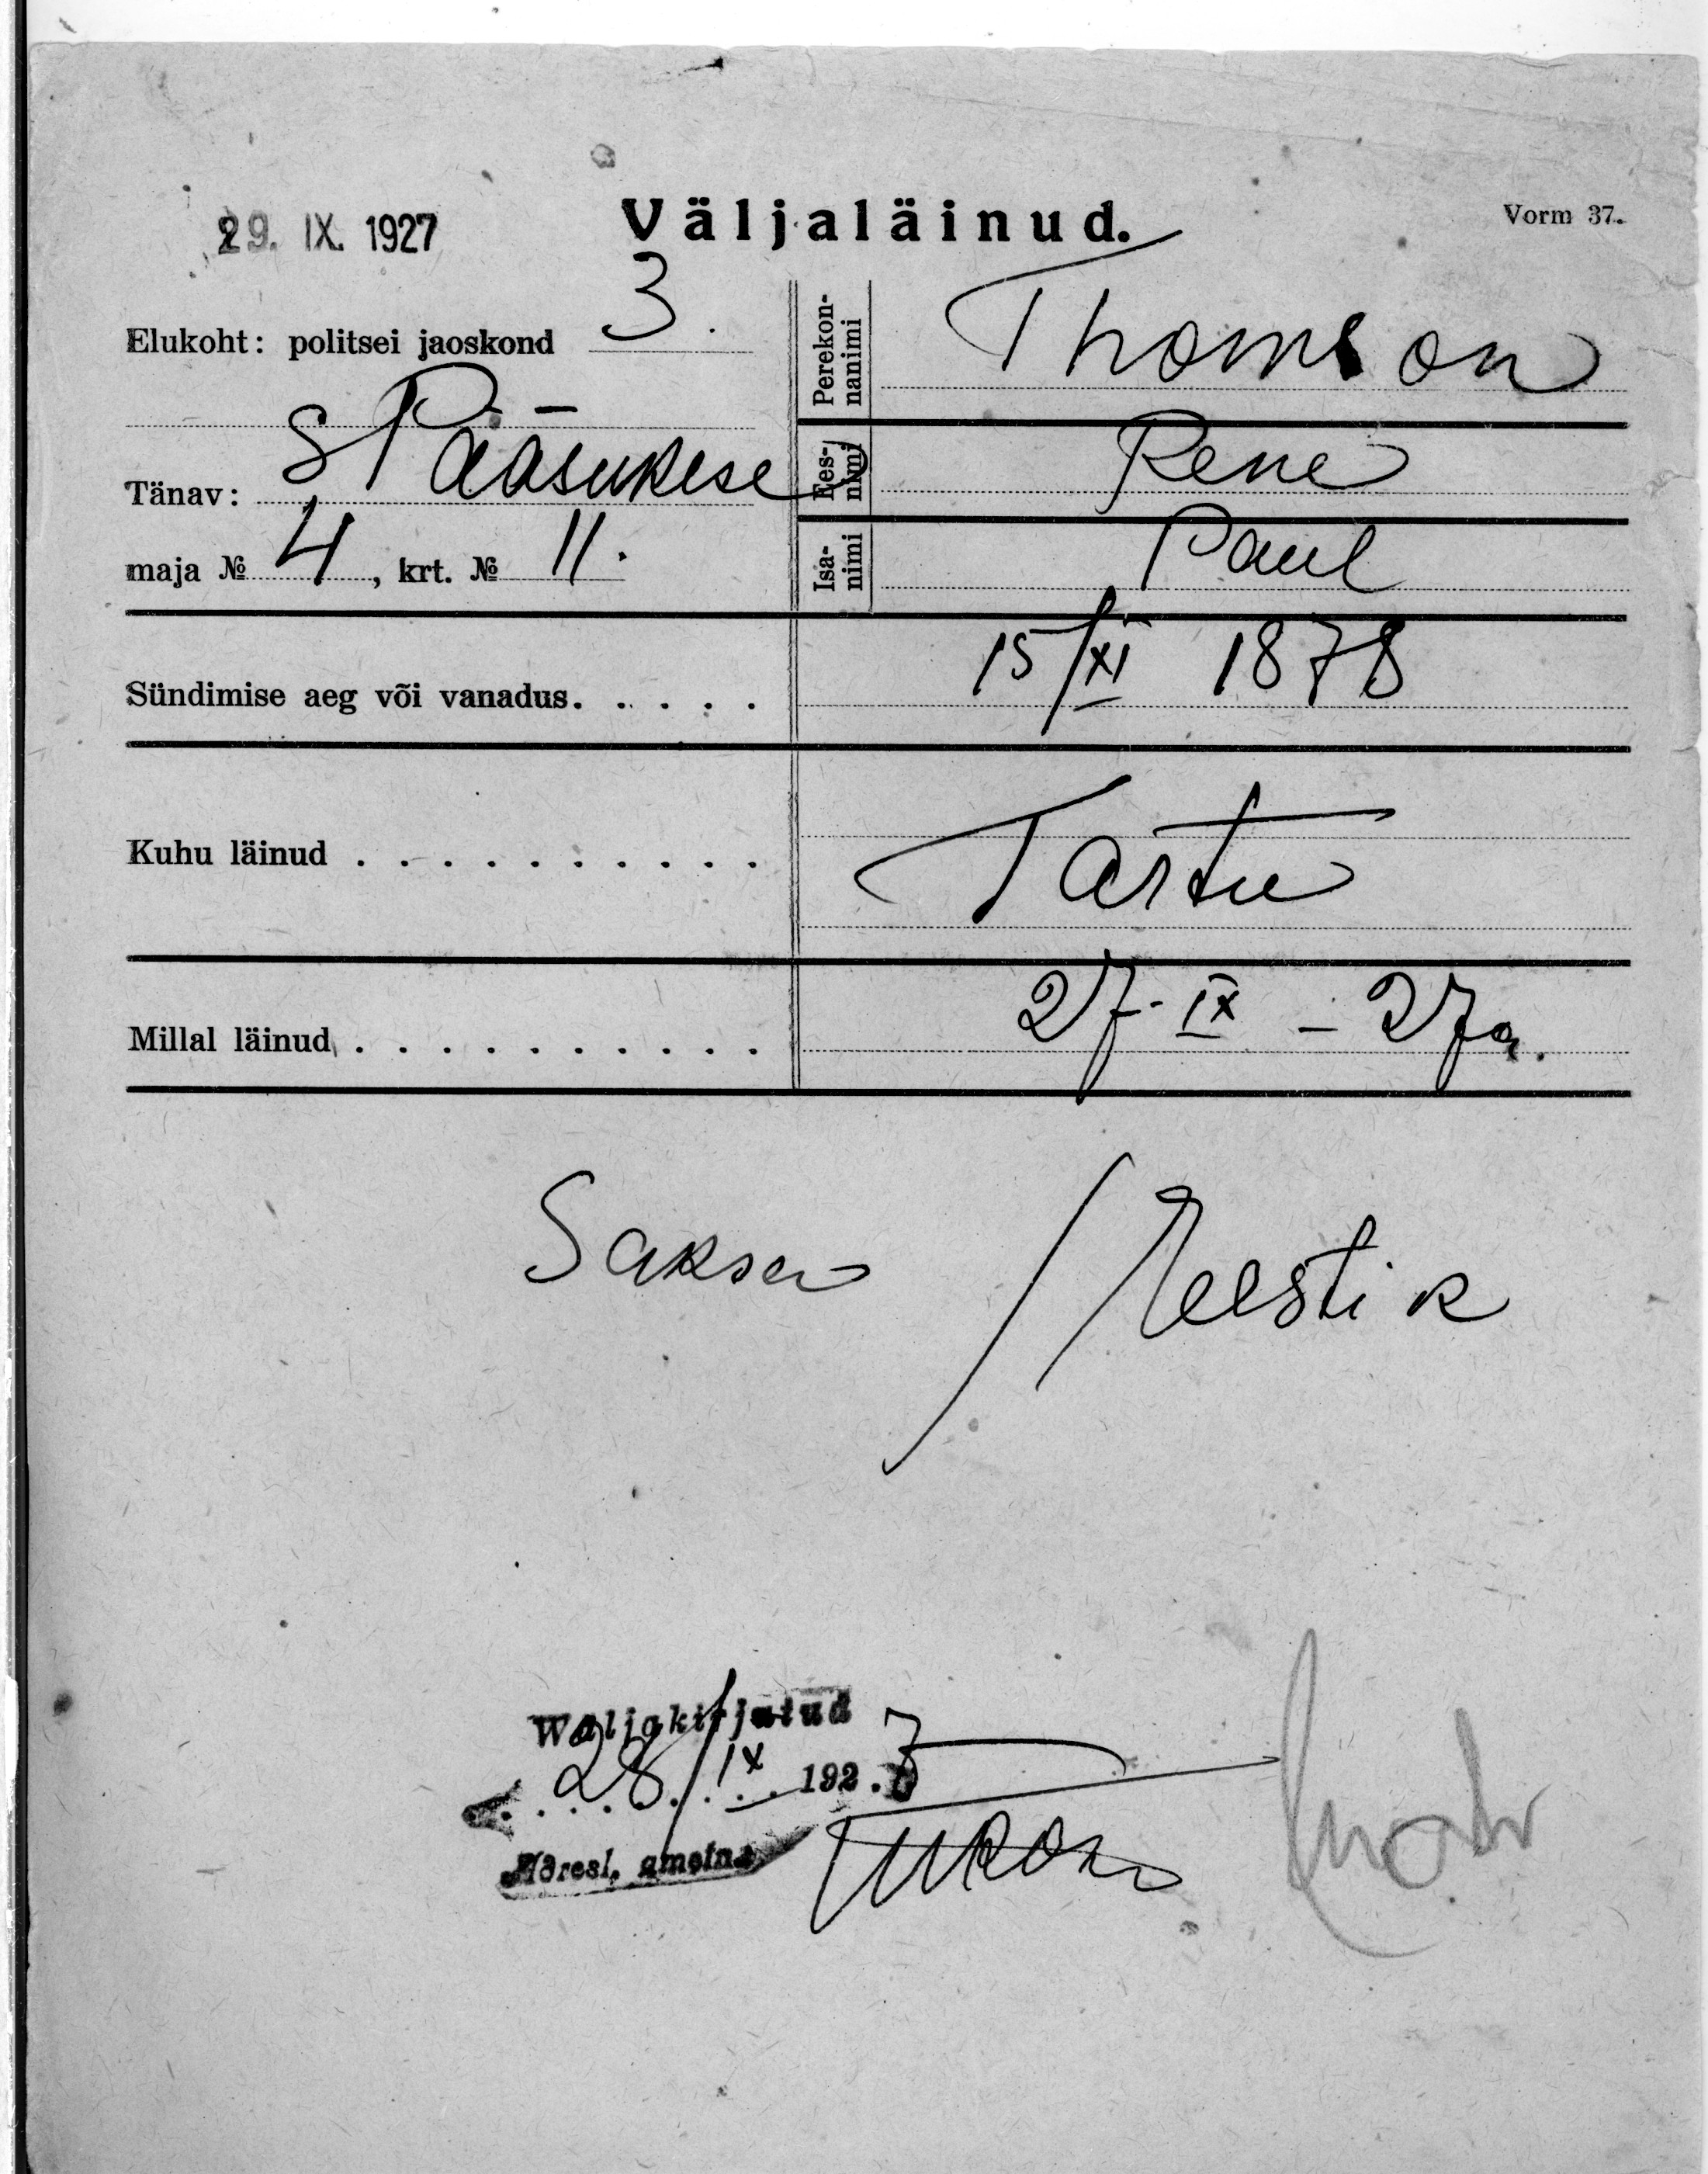 29. IX. 1927
Väljaläinud.
Vorm 37.
Elukoht: politsei jaoskond 3.
Tänav: S Pääsukese
maja № 4, krt. № 11.
Perekon-
nanimi
Thomson
Ees-
nimi
Rene
Isa-
nimi
Paul
Sündimise aeg või vanadus. . . . . 15/XI 1878
Kuhu läinud . . . . . . . . . . Tartu
Millal läinud . . . . . . . . . . 27-IX-27a.
Saksa / Eestik
Wäljakirjutud
28/IX 1927